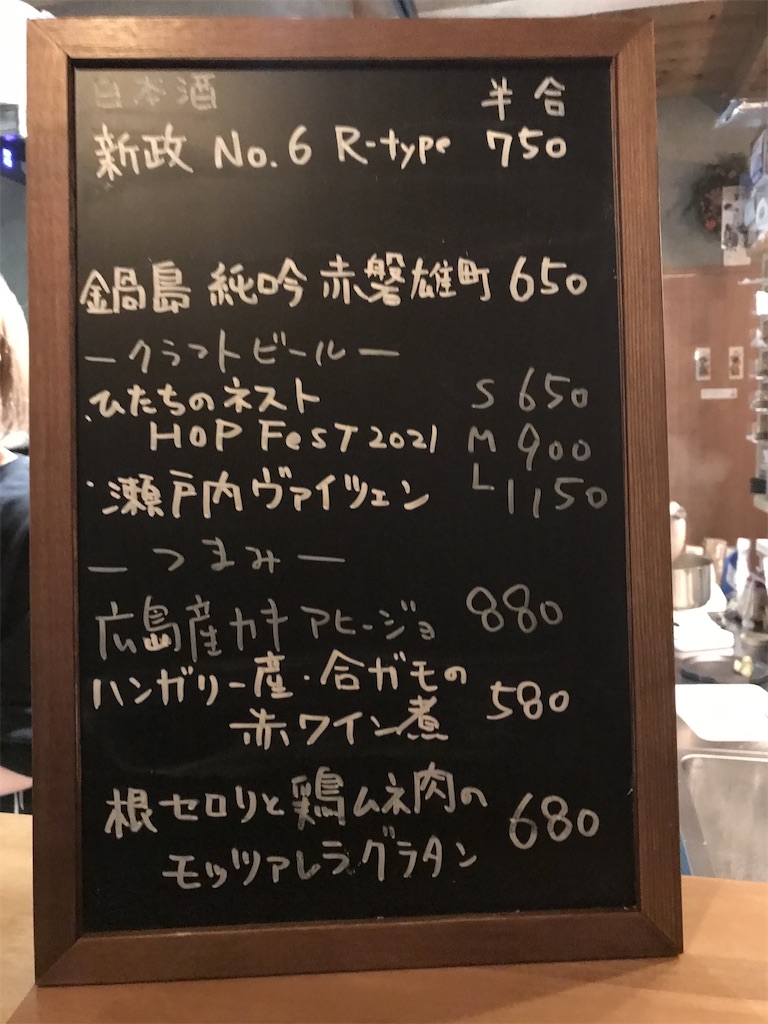 日本酒 半合
新政 No.6 R-type 750
鍋島 純吟 赤磐雄町 650
ークラフトビールー
・ひたちのネスト S 650
HOP FesT 2021 M 900
・瀬戸内ヴァイツェン L 1150
ーつまみー
広島産カキアヒージョ 880
ハンガリー産・合ガモの
赤ワイン煮 580
根セロリと鶏ムネ肉の 680
モッツァレラグラタン